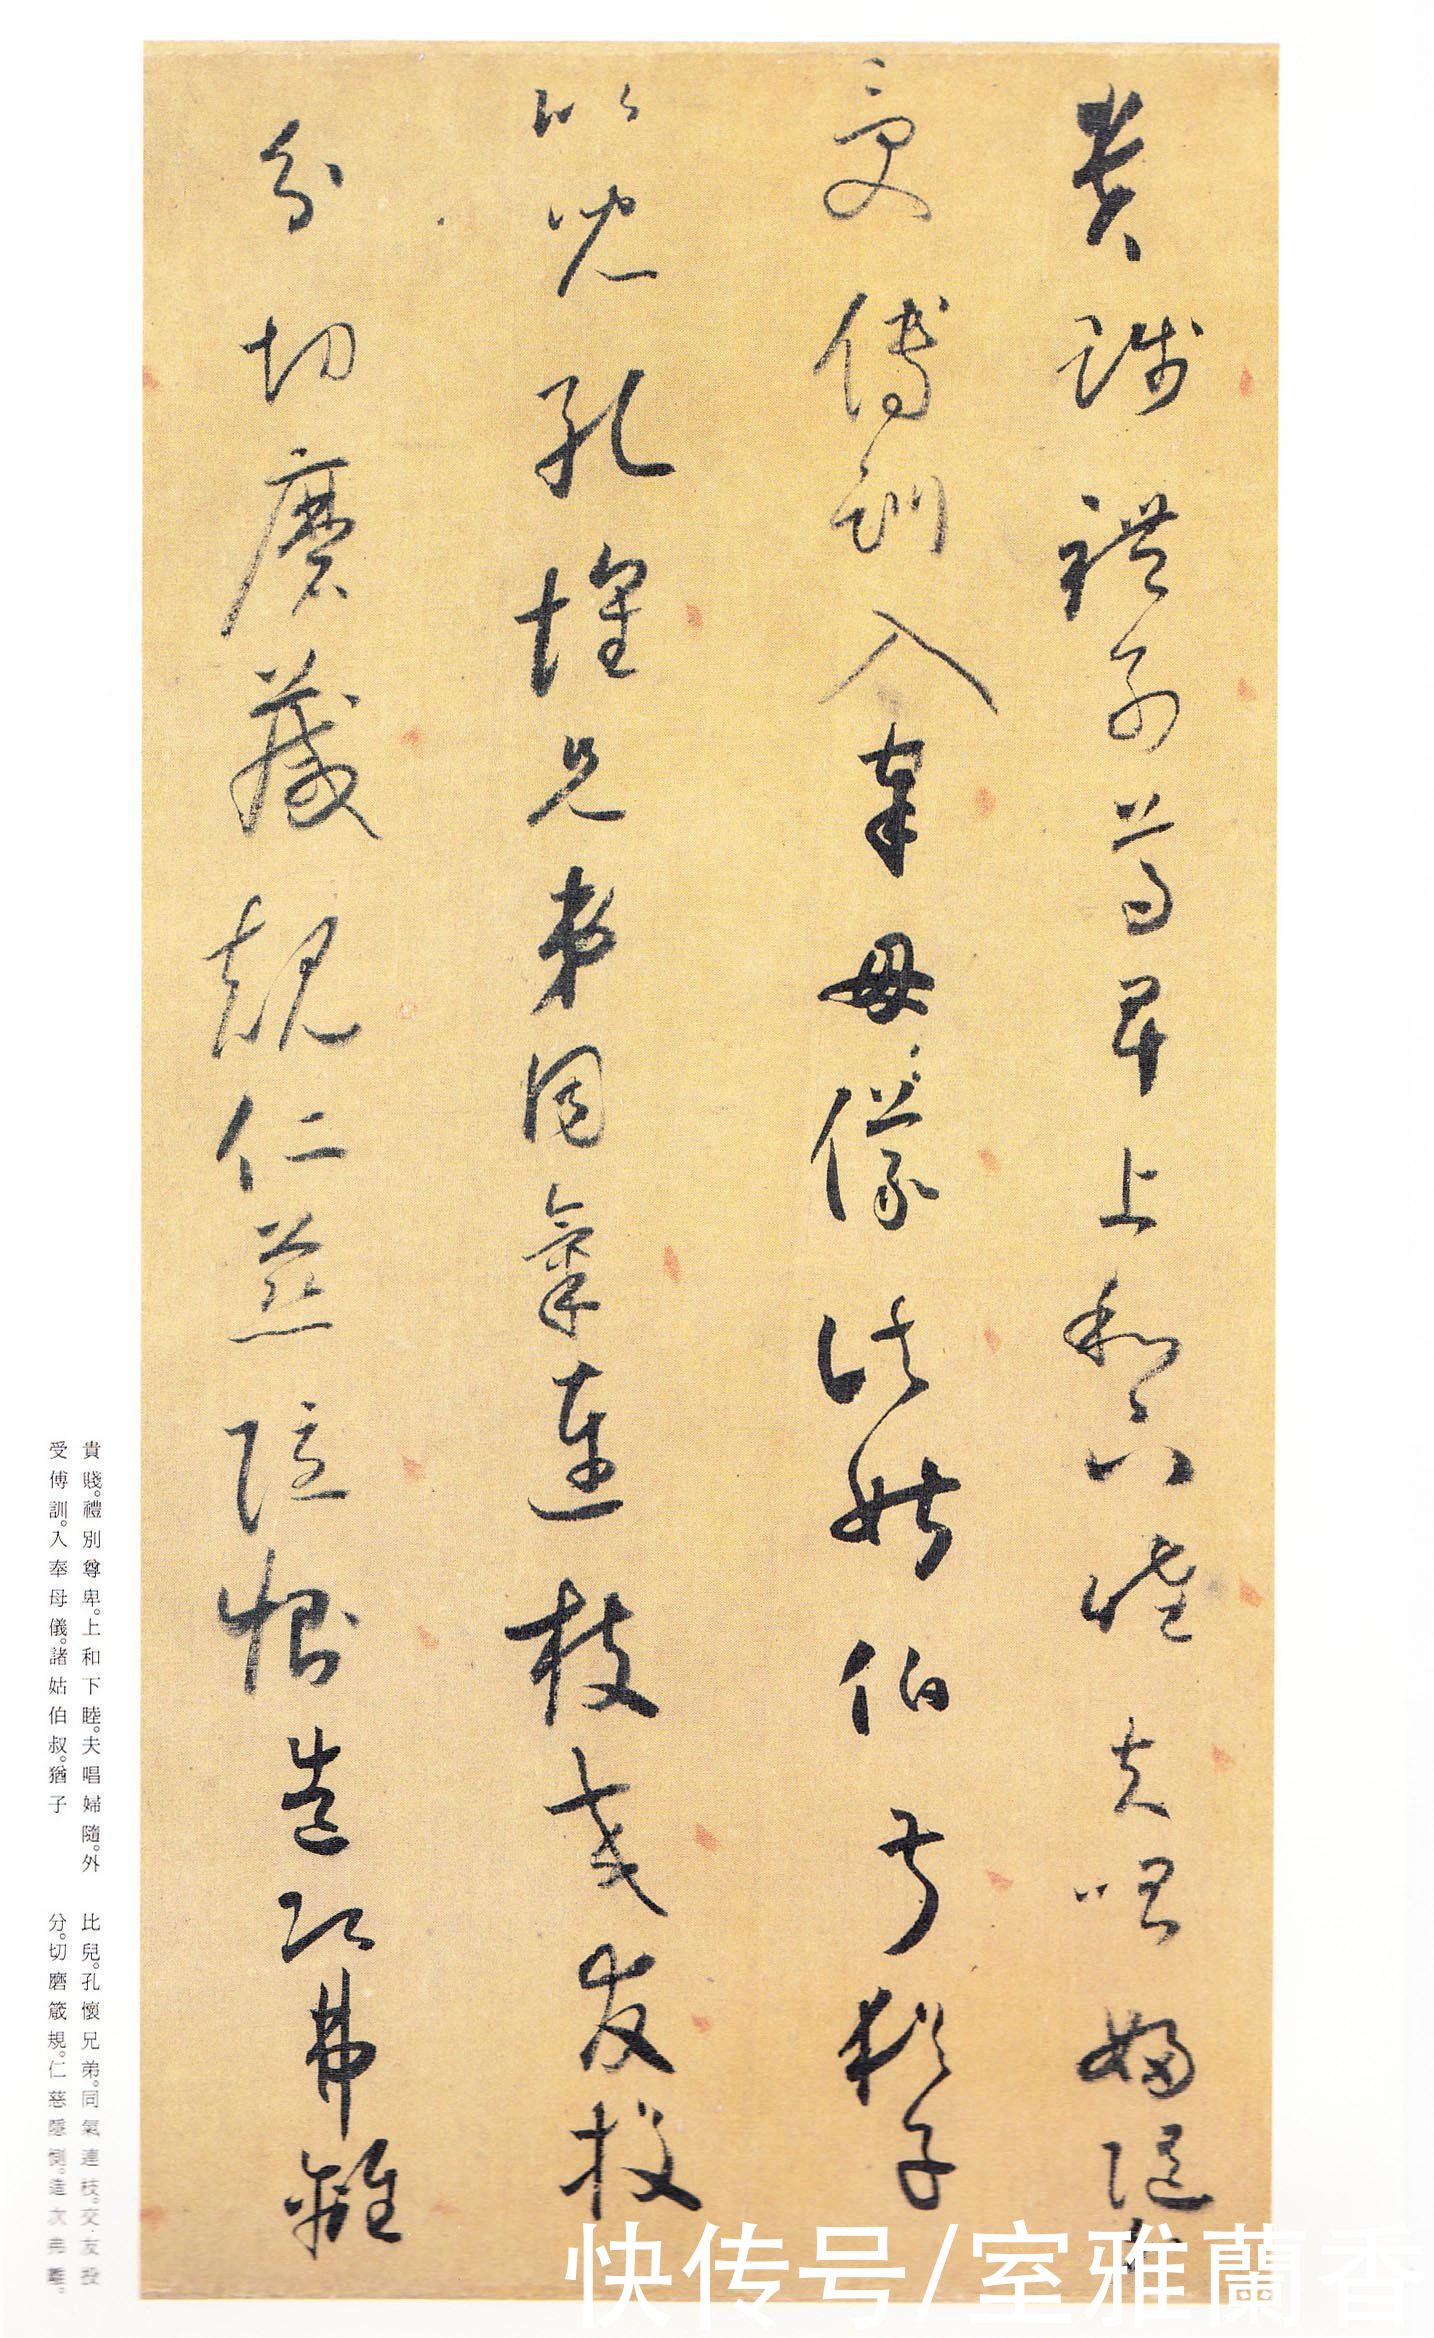 貴賤禮別尊卑上和下睦夫唱婦隨外
受傅訓入奉母儀諸姑伯叔猶子
比兒孔懷兄弟同氣連枝交友投
分切磨箴規仁慈隱惻造次弗離
貴賤。禮別尊卑。上和下睦。夫唱婦隨。外
受傅訓。入奉母儀。諸姑伯叔。猶子
比兒。孔懷兄弟。同氣連枝。交友投
分。切磨箴規。仁慈隱惻。造次弗離。
快传号/室雅蘭香